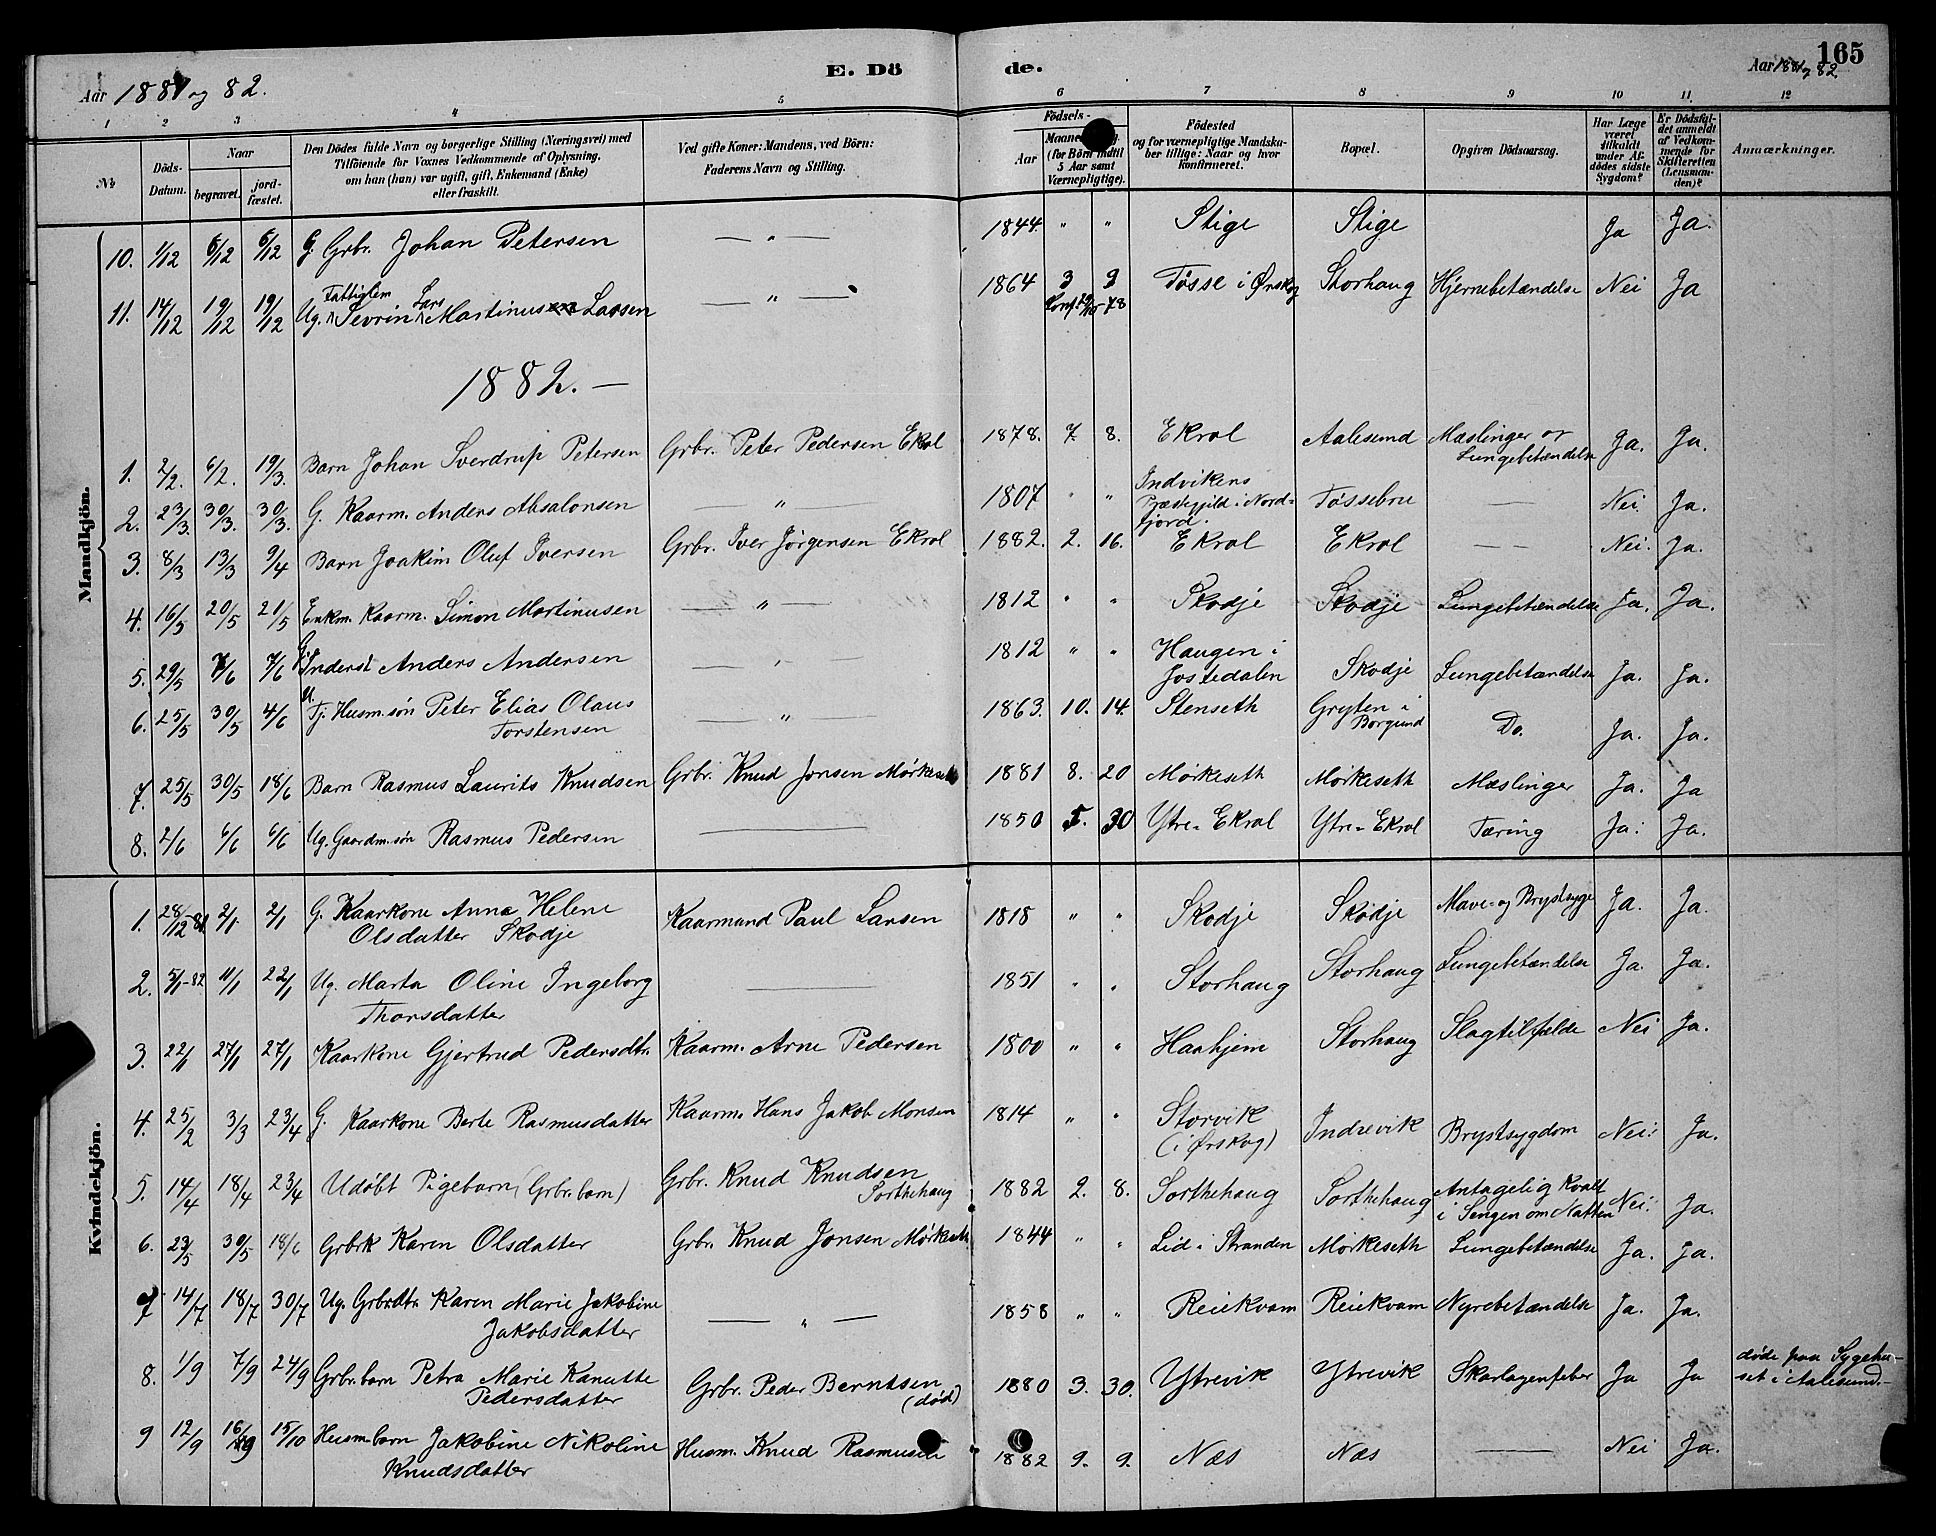 Aar 1881 og 82. E. Dö de. Aar 1881 og 82. 165
1 2 3 4 5 6 7 8 9 10 11 12
No
Döds-Datum.
Naar
begravet.
jord-fæstet.
Den Dödes fulde Navn og borgerlige Stilling (Næringsvei) med
Tilföiende for Voxnes Vedkommende af Oplysning,
om han (hun) var ugift, gift, Enkemand (Enke)
eller fraskilt.
Ved gifte Koner: Mandens, ved Börn:
Faderens Navn og Stilling.
Födsels-
Aar
(for Börn indtil
5 Aar samt
Værnepligtige).
Födested
og for værnepligtige Mandska-
ber tillige: Naar og hvor
konfirmeret.
Bopæl.
Opgiven Dödsaarsag.
Har Læge
været
tilkaldt
under Af-
dödes sidste
Sygdom?
Er Dödsfal-
det anmeldt
af Vedkom-
mende for
Skifteretten
(Lensman-
den)?
Anmærkninger.
Mandkjön.
10. 1/12 6/12 6/12 G. Grbr. Johan Petersen — " — 1844. " " Stige Stige Ja Ja.
11. 14/12 19/12 19/12 Ug. Fattiglem Sevrin Lars Martinus Larsen — " — 1864 3 9 Tøsse i Ørskog Storhaug Hjernebetændelse Nei Ja
1882. —
1. 2/2. 6/2. 19/3. Barn Johan Sverdrup Petersen Grbr. Peter Pedersen Ekrol 1878. 7. 8. Ekrol Aalesund Mæslinger og Lungebetændelse Ja. Ja.
2. 23/3. 30/3. 30/3. G. Kaarm. Anders Absalonsen — " — 1807 " " Indvikens Præstegjild i Nordfjord. Tøssebro — Nei. Ja.
3. 8/3 13/3 9/4 Barn Joakim Oluf Iversen Grbr. Iver Jørgensen Ekrol 1882. 2. 16. Ekrol Ekrol — — Nei. Ja.
4. 16/5 20/5 21/5 Enkm. Kaarm. Simon Martinusen — " — 1812 " " Skodje Skodje Lungebetændelse Ja. Ja.
5. 29/5 7/6 7/6 G. Inderst Anders Andersen — " — 1812 " " Haugen i Jostedalen Skodje Lungebetændelse Ja. Ja.
6. 25/5 30/5 4/6 U. Tj. Husm.søn Peter Elias Olaus Torstensen — " — 1863. 10. 14. Stenseth Gryten i Borgund Do. Ja. Ja.
7. 25/5 30/5 18/6 Barn Rasmus Laurits Knudsen Grbr. Knud Jonsen Mørkeseth 1881 8. 20 Mørkeseth Mørkeseth Mæslinger Ja. Ja
8. 2/6 6/6 6/6 Ug. Gaardm.søn Rasmus Pedersen — 1850 5. 30 Ytre-Ekrol Ytre-Ekrol Tæring Ja. Ja.
Kvindekjön.
1. 28/12-81 2/1 2/1 G. Kaarkone Anne Helene Olsdatter Skodje Kaarmand Paul Larsen 1818 " " Skodje Skodje Mave- og Brystsyge Ja. Ja.
2. 5/1-82 11/1 22/1 Ug. Marta Oline Ingeborg Thorsdatter — 1851 " " Storhaug Storhaug Lungebetændelse Ja. Ja.
3. 22/1 27/1 27/1 Kaarkone Gjertrud Pedersdtr. Kaarm. Arne Pedersen 1800 " " Haahjem Storhaug Slagtilfælde Nei Ja.
4. 25/2 3/3 23/4 G. Kaarkone Berte Rasmusdatter Kaarm. Hans Jakob Monsen 1814 " " Storvik (i Ørskog) Indrevik Brystsygdom Nei. Ja.
5. 14/4 18/4 23/4 Udøbt Pigebarn (Grbr.barn) Grbr. Knud Knudsen Sorthehaug 1882 2. 8. Sorthehaug Sorthehaug Antagelig kvalt i Sengen om Natten Nei. Ja.
6. 23/5 30/5 18/6 Grbrk Karen Olsdatter Grbr. Knud Jonsen Mørkeseth 1844 " " Lid i Stranden Mørkeseth Lungebetændelse Ja. Ja.
7 14/7 18/7 30/7 Ug. Grbrdtr. Karen Marie Jakobine Jakobsdatter — " — 1858 " " Reiekvam Reiekvam Nyrebetændelse Ja. Ja.
8. 1/9 7/9 24/9 Grbr.barn Petra Marie Kanutte Pedersdatter Grbr. Peder Berntsen (død) 1880 3. 30. Ytrevik Ytrevik Skarlagenfeber Ja Ja døde paa Sygehuset i Aalesund.-
9 12/9 16/9 15/10 Husm.barn Jakobine Nikoline Knudsdatter Husm. Knud Rasmusen 1882 9. 9. Næs Næs — Nei Ja.